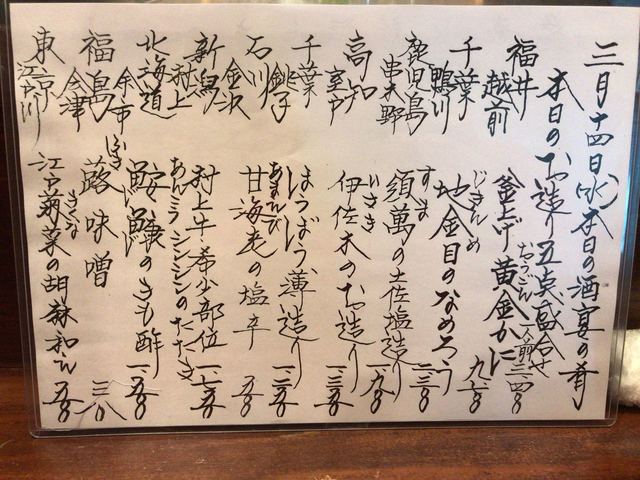 三月十四日(水)本日の酒宴の肴
本日のお造り五点盛合せ 一人前二、三四〇
福井 越前 釜上げ黄金がに おうごん 九八〇
千葉 鴨川 地金目のなめろう じきんめ 一、二三〇
鹿児島 串木野 須萬の土佐塩造り すま 一、一九〇
高知 室戸 伊佐木のお造り いさき 一、二三〇
千葉 銚子 ほうぼう薄造り 一、二五〇
石川 金沢 甘海老の塩辛 あまえび 五五〇
新潟 村上 村上牛希少部位 あんこうシンシンのたたき 一、七五〇
北海道 余市 鮟鱇のきも酢 一、二五〇
福島 会津 蕗味噌 ふき 三八〇
東京 江戸川 江戸菊菜の胡麻和え きくな 五五〇